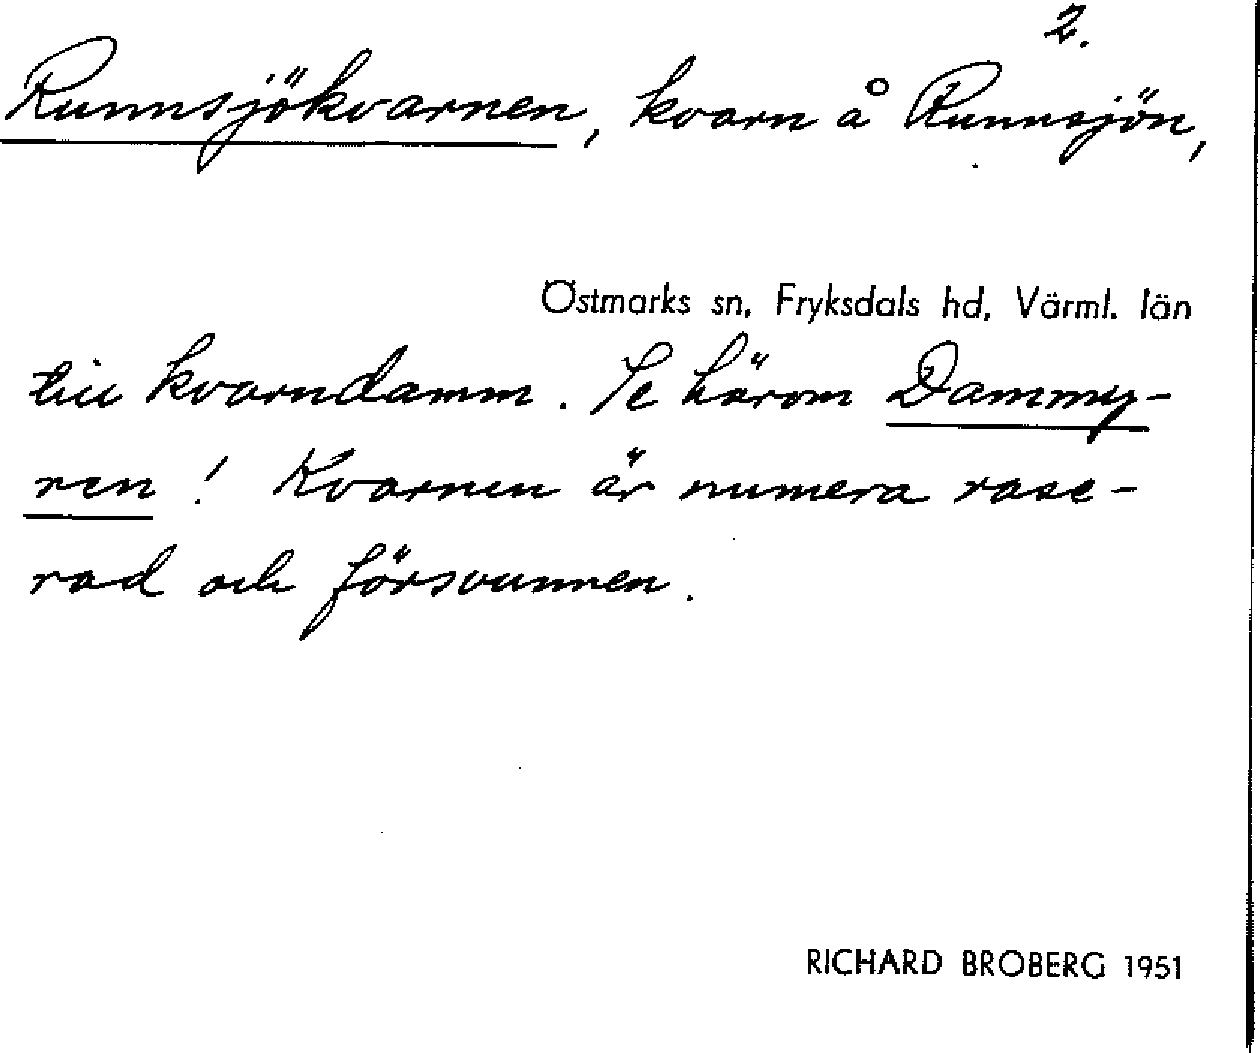 2.
Runnsjökvarnen, kvarn å Runnsjön,
Östmarks sn, Fryksdals hd, Värml. län
till kvarndamm. Se härom Dammy-
ren! Kvarnen är numera rase-
rad och försvunnen.
RICHARD BROBERG 1951